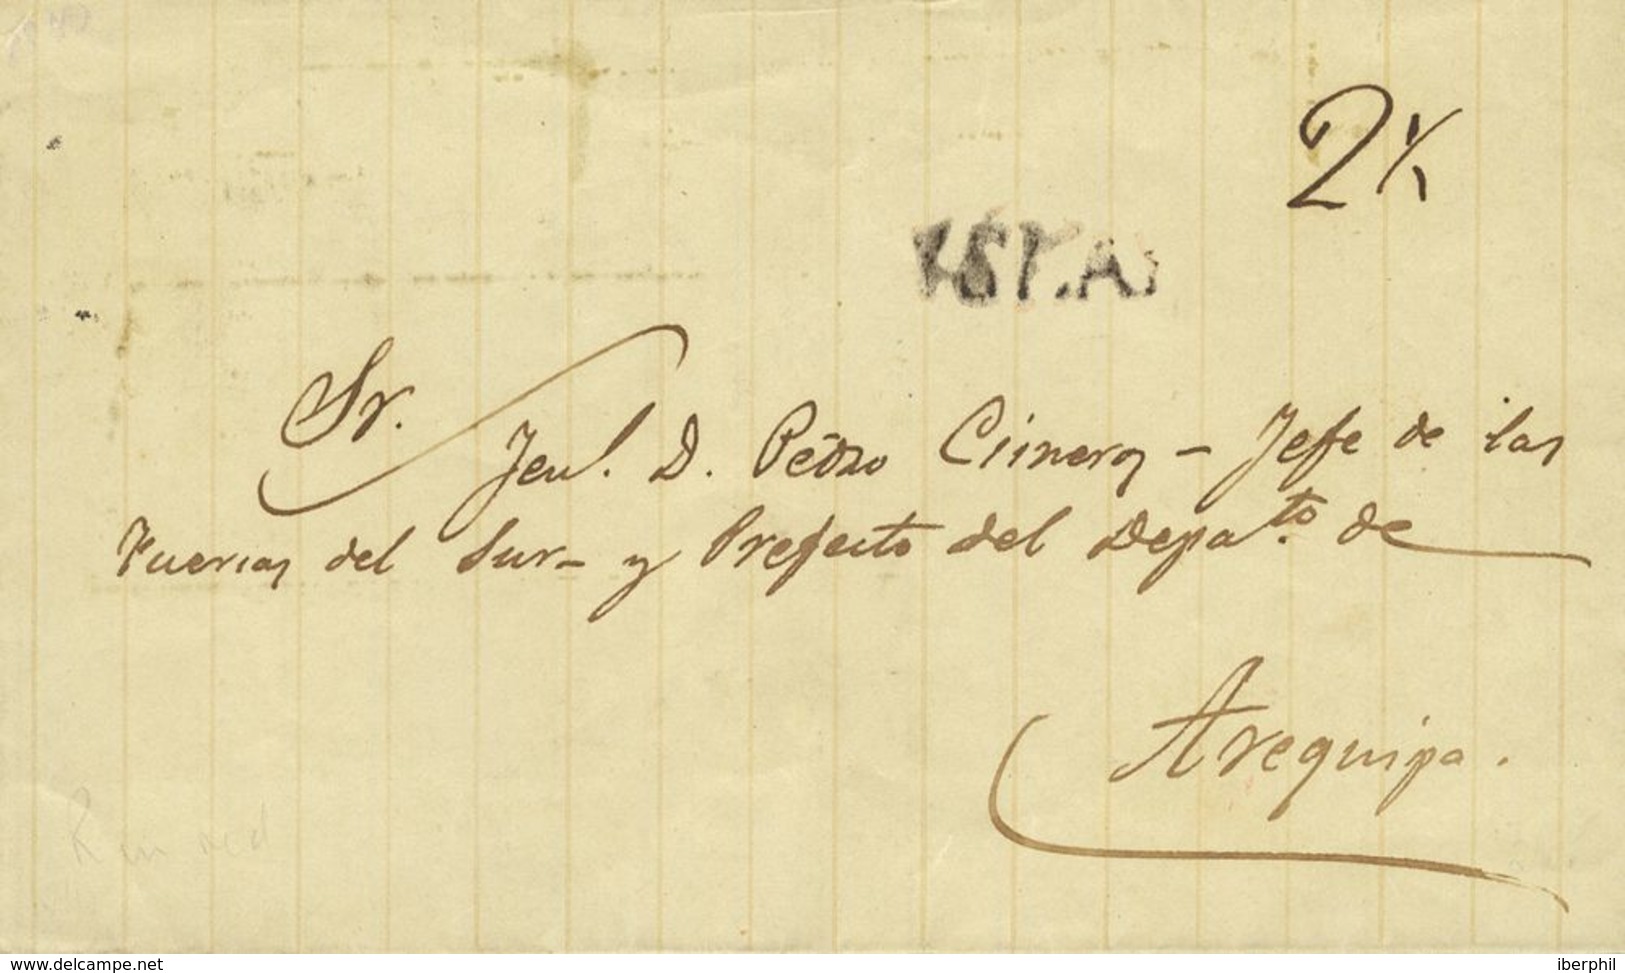 2 ½
Sr.
Jeul. D. Pedro Ciinero, - Jefe de las
Fuerzas del Sur - y Prefecto del Depa.to de
Arequipa.
www.delcampe.net
iberphil